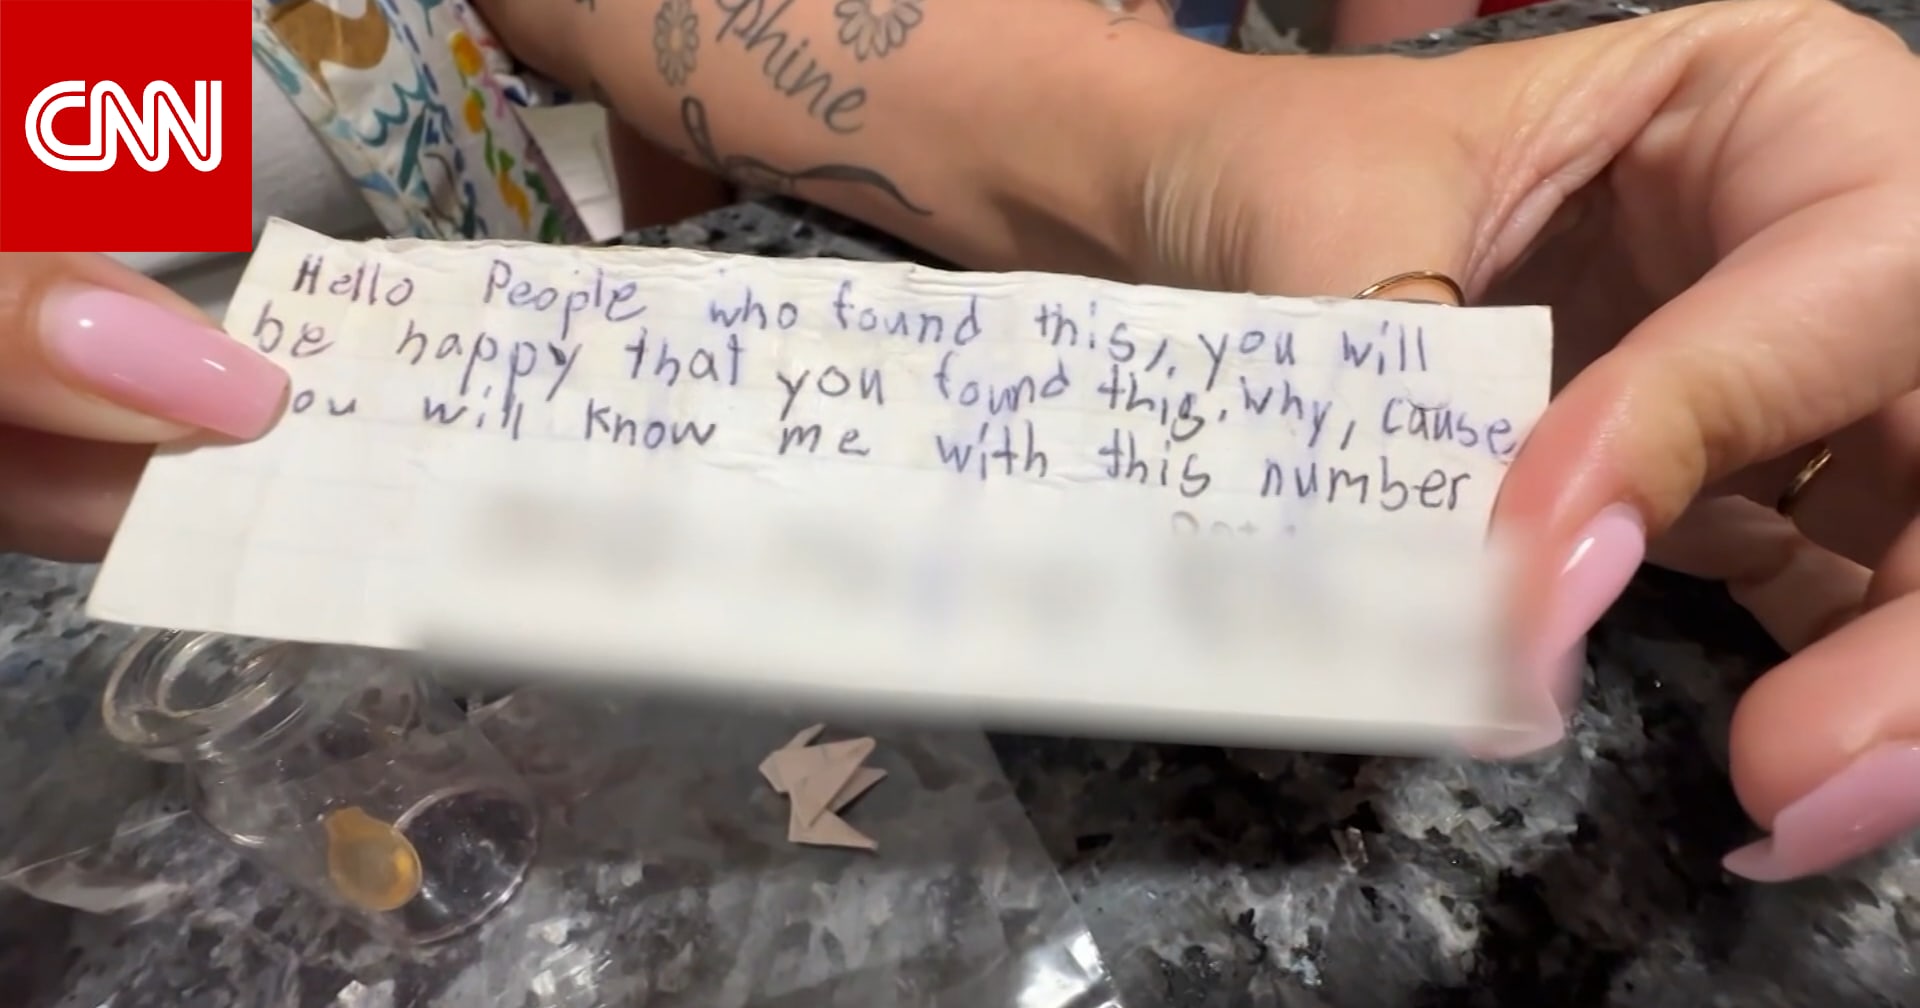 CNN
phine
Hello People who found this, you will
be happy that you found this. Why, cause
ou will know me with this number